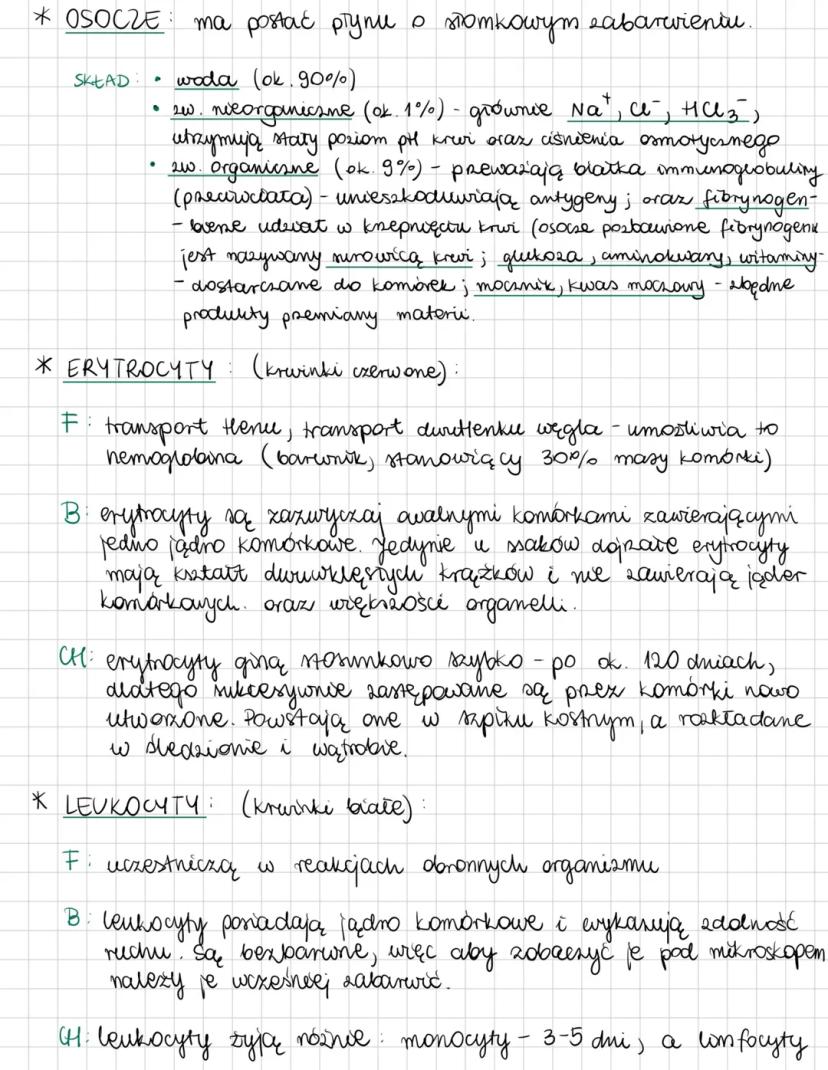 * OSOCZE: ma postać płynu o słomkowym zabarwieniu.
SKŁAD: • woda (ok. 90%)
• zw. nieorganiczne (ok. 1%) - głównie Na⁺, Cl⁻, HCl₃⁻,
utrzymują stały poziom pH krwi oraz ciśnienia osmotycznego
• zw. organiczne (ok. 9%) - przeważają białka immunoglobuliny
(przeciwciała) - unieszkodliwiają antygeny; oraz fibrynogen-
- bierze udział w krzepnięciu krwi (osocze pozbawione fibrynogenu
jest nazywany surowicą krwi; glukoza, aminokwasy, witaminy-
- dostarczane do komórek; mocznik, kwas moczowy - zbędne
produkty przemiany materii.
* ERYTROCYTY: (krwinki czerwone):
F: transport tlenu, transport dwutlenku węgla - umożliwia to
hemoglobina (barwnik, stanowiący 30% masy komórki)
B: erytrocyty są zazwyczaj owalnymi komórkami zawierającymi
jedno jądro komórkowe. Jedynie u ssaków dojrzałe erytrocyty
mają kształt dwuwklęsłych krążków i nie zawierają jąder
komórkowych. oraz większości organelli.
CH: erytrocyty giną stosunkowo szybko - po ok. 120 dniach,
dlatego sukcesywnie zastępowane są przez komórki nowo
utworzone. Powstają one w szpiku kostnym, a rozkładane
w śledzionie i wątrobie.
* LEUKOCYTY: (krwinki białe):
F: uczestniczą w reakcjach obronnych organizmu
B: leukocyty posiadają jądro komórkowe i wykazują zdolność
ruchu. Są bezbarwne, więc aby zobaczyć je pod mikroskopem
należy je wcześniej zabarwić.
CH: leukocyty żyją różnie: monocyty - 3-5 dni, a limfocyty